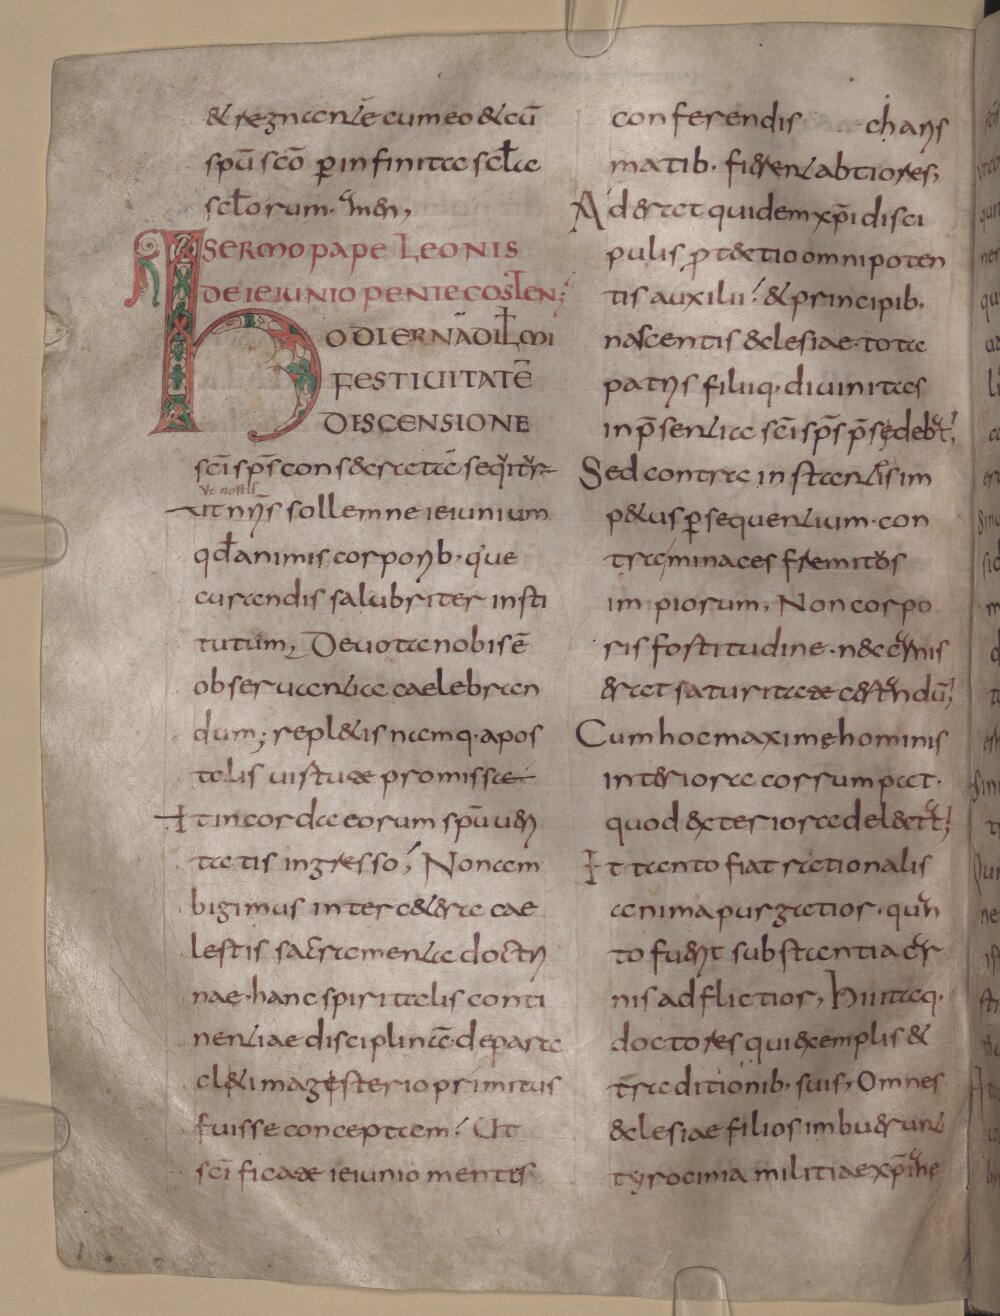 & regnante cum eo & cū
spū scō ꝑ infinita scła
scłorum. amen,
SERMO PAPE LEONIS
DE IEIUNIO PENTECOSTEN;
HODIERNĀ DILMI
FESTIUITATĒ
DISCENSIONE
sci sps consecratā sequitur
ut nostis
ut n̄ris sollemne ieiunium
qđ animis corporib· que
curandis salubriter insti
tutum, Deuota nobis ē
obseruantia caelebran
dum; repl&is namq· apos
tolis uirtute promissa
Et in cordα eorum spū uери
tatis ingresso; Non am
bigimus inter c&era cae
lestis sacramenta doctri
nae· hanc spiritalis conti
nentiae disciplinā de para
cl&i magesterio primitus
fuisse conceptam; Ut
scificate ieiunio mentes
conferendis charis
matib· fierent abtiores,
Aderat quidem xp̄i disci
pulis protectio omnipoten
tis auxilii; & principib·
nascentis &clesiae tota
patris filiiq· diuinitas
in p̄sentia sci sps p̄sedebat;
Sed contra instantis im
p&us ꝑsequentium· con
tra minaces fremitus
impiorum, Non corpo
ris fortitudine· nec carnis
erat saturitate certandū;
Cum hoc maxime hominis
interiora corrumpat·
quod exteriora delectat;
Et tanto fiat rationalis
anima purgatior· quan
to fuerit substantia car
nis adflictior, Hii itaq·
doctores qui exemplis &
traditionib· suis, Omnes
&clesiae filios imbuerunt
tyrocinia militiae xp̄iane